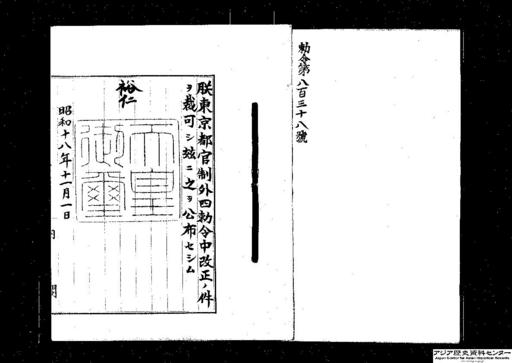 勅令第八百三十八號
朕東京都官制外四勅令中改正ノ件
ヲ裁可シ玆ニ之ヲ公布セシム
裕仁
天皇
御璽
昭和十八年十一月一日
アジア歴史資料センター
Japan Center for Asian Historical Records